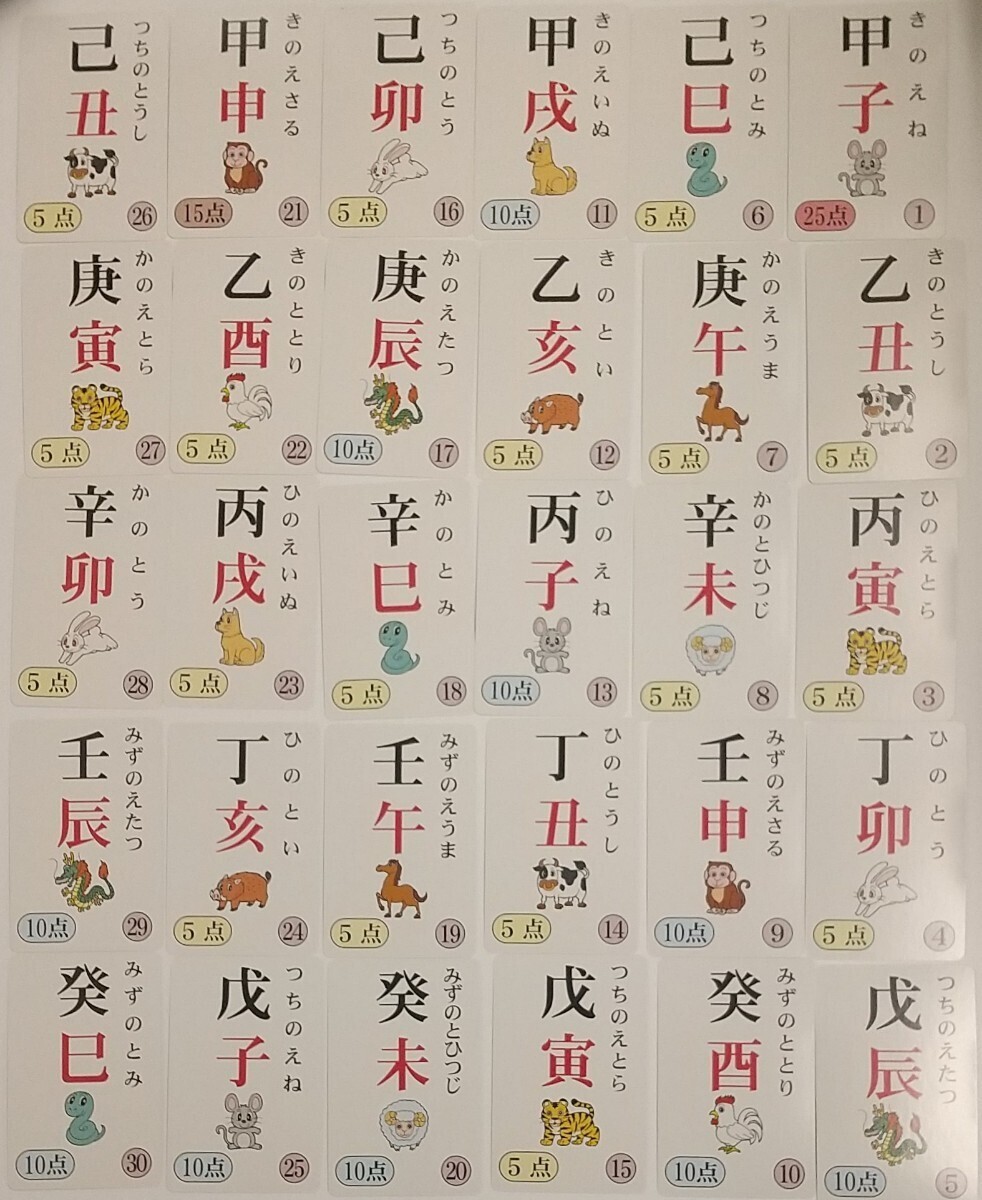 甲子
きのえね
25点
1
乙丑
きのとうし
5点
2
丙寅
ひのえとら
5点
3
丁卯
ひのとう
5点
4
戊辰
つちのえたつ
10点
5
己巳
つちのとみ
5点
6
庚午
かのえうま
5点
7
辛未
かのとひつじ
5点
8
壬申
みずのえさる
10点
9
癸酉
みずのととり
10点
10
甲戌
きのえいぬ
10点
11
乙亥
きのとい
5点
12
丙子
ひのえね
10点
13
丁丑
ひのとうし
5点
14
戊寅
つちのえとら
5点
15
己卯
つちのとう
5点
16
庚辰
かのえたつ
10点
17
辛巳
かのとみ
5点
18
壬午
みずのえうま
5点
19
癸未
みずのとひつじ
10点
20
甲申
きのえさる
15点
21
乙酉
きのととり
5点
22
丙戌
ひのえいぬ
5点
23
丁亥
ひのとい
5点
24
戊子
つちのえね
10点
25
己丑
つちのとうし
5点
26
庚寅
かのえとら
5点
27
辛卯
かのとう
5点
28
壬辰
みずのえたつ
10点
29
癸巳
みずのとみ
10点
30